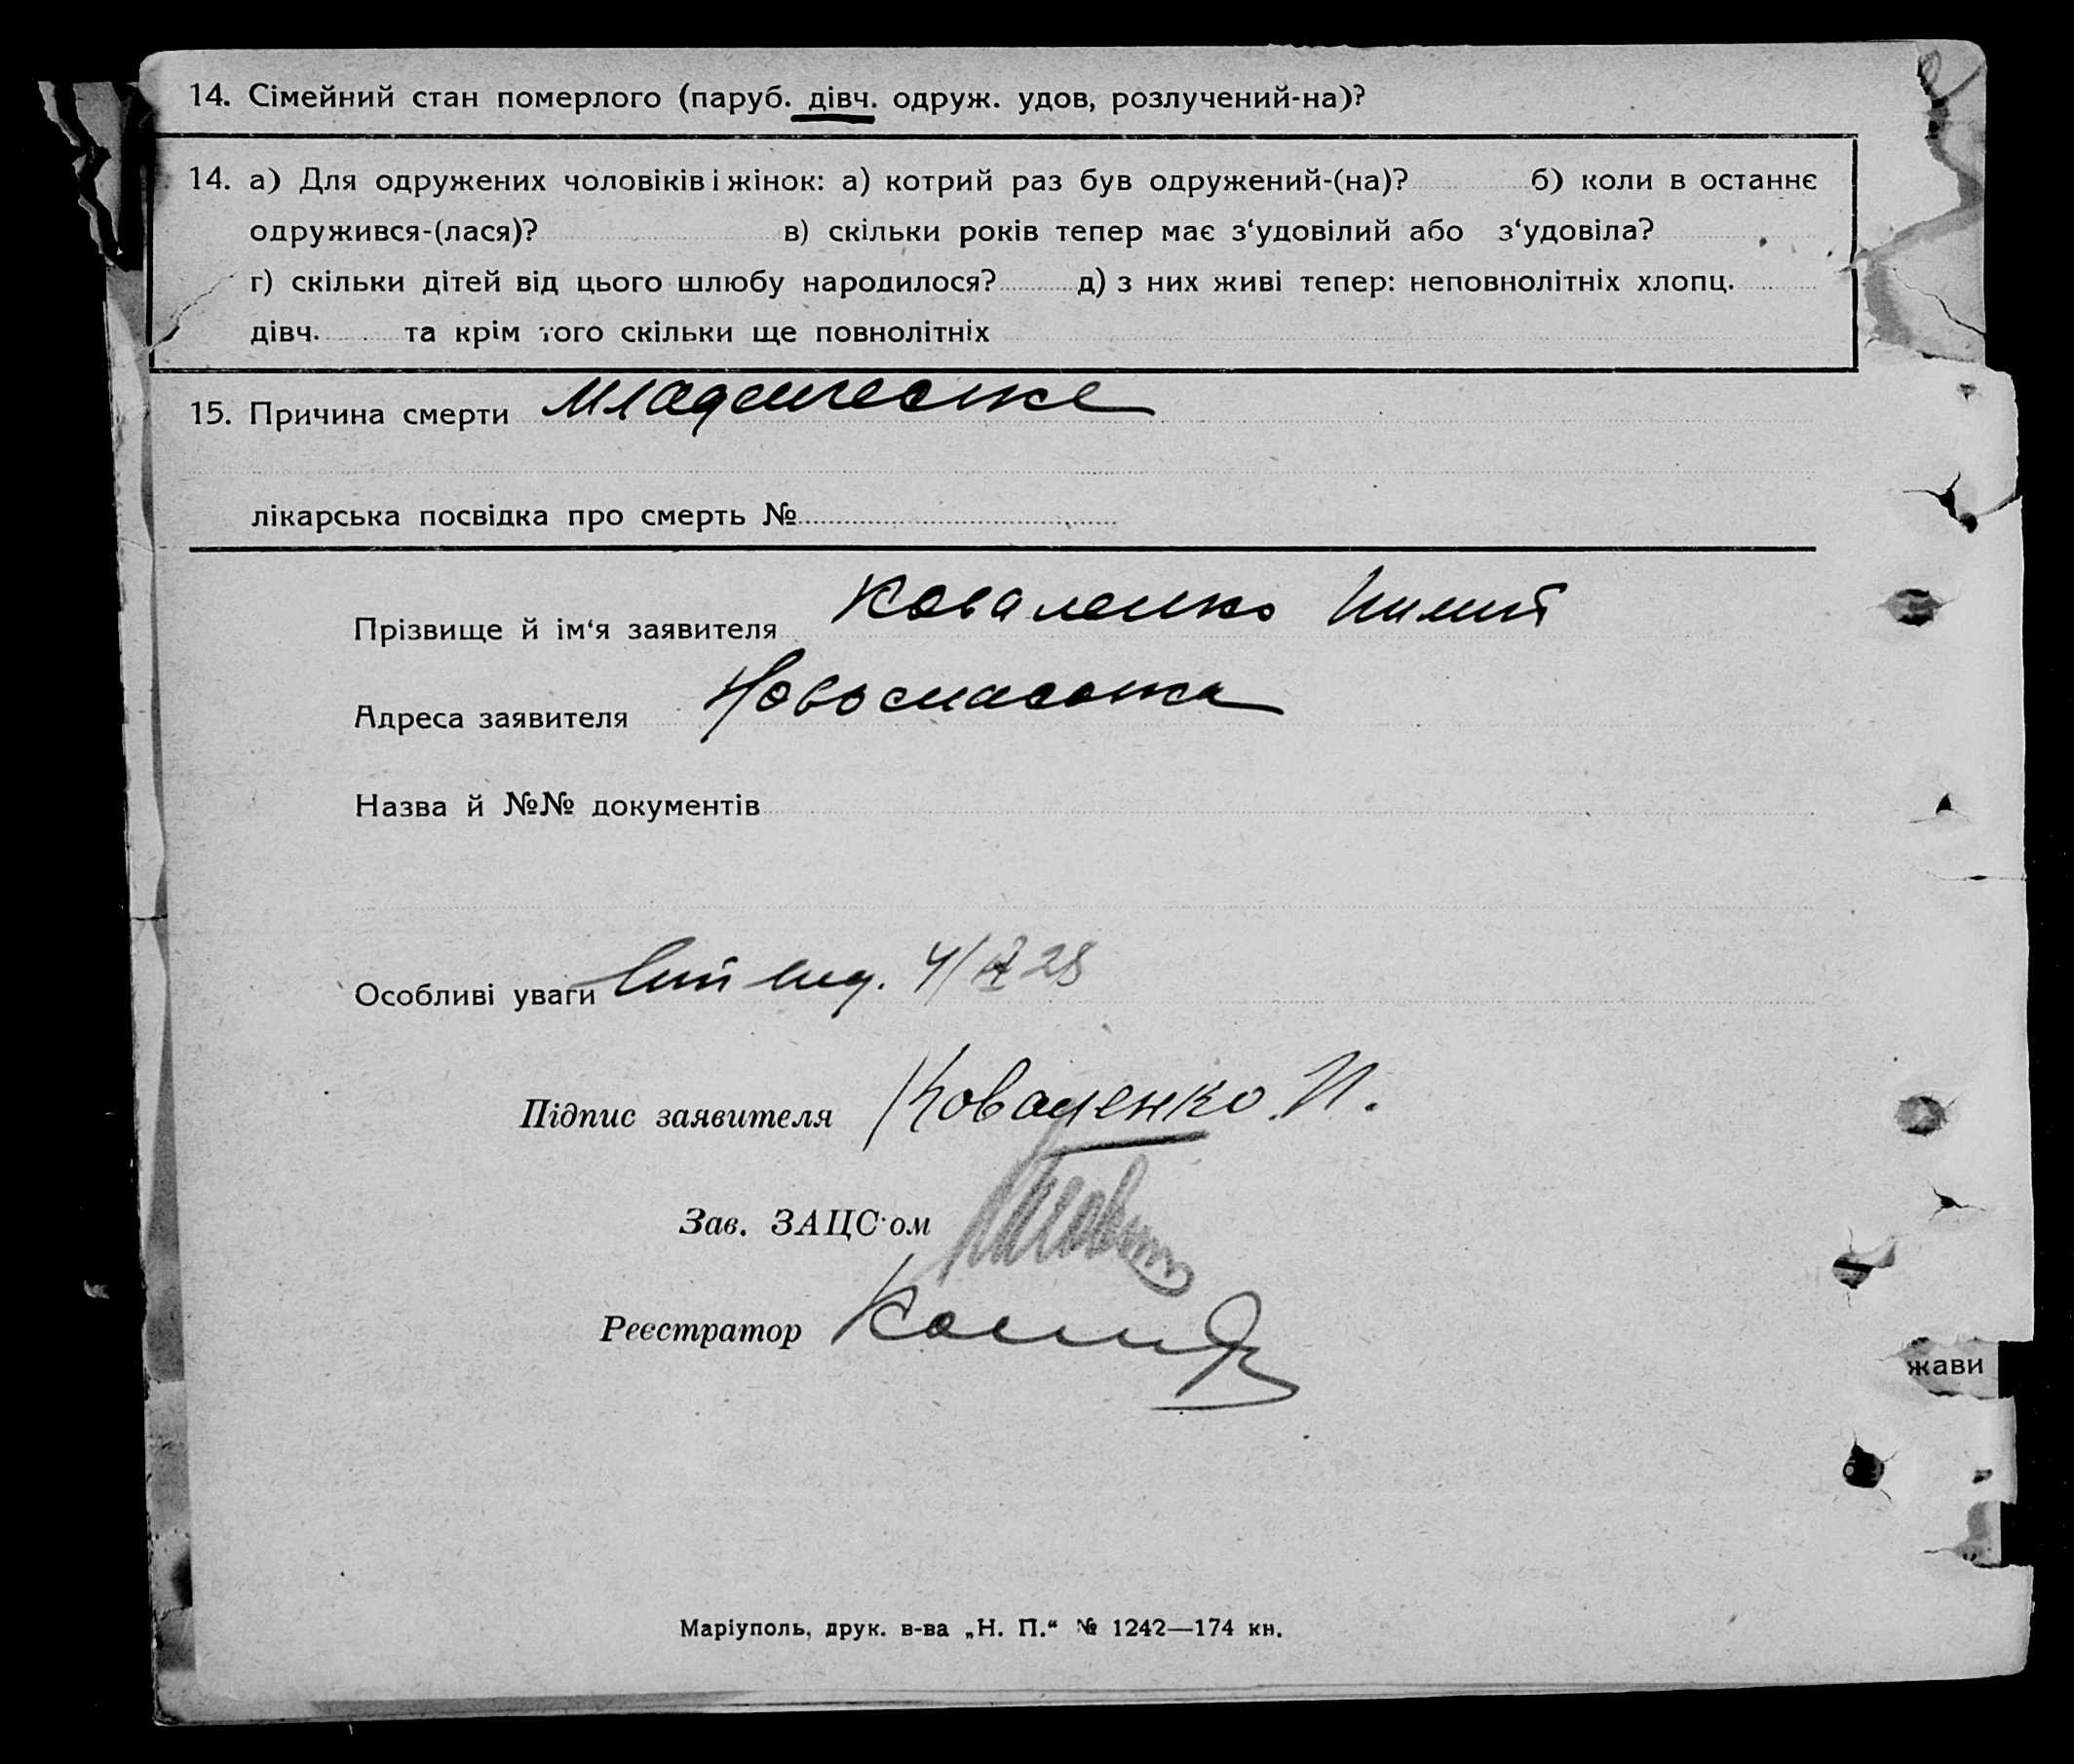 14. Сімейний стан померлого (паруб. дівч. одруж. удов, розлучений-на)?
14. а) Для одружених чоловіків і жінок: а) котрий раз був одружений-(на)? б) коли в останнє
одружився-(лася)? в) скільки років тепер має з‘удовілий або з‘удовіла?
г) скільки дітей від цього шлюбу народилося? д) з них живі тепер: неповнолітніх хлопц.
дівч. та крім того скільки ще повнолітніх
15. Причина смерти Младенческе
лікарська посвідка про смерть №
Прізвище й ім‘я заявителя Коваленко
Адреса заявителя Новоспасовка
Назва й №№ документів
Особливі уваги
Підпис заявителя Коваленко И.
Зав. ЗАЦС'ом
Реєстратор
жави
Маріуполь, друк. в-ва „Н. П.“ № 1242—174 кн.